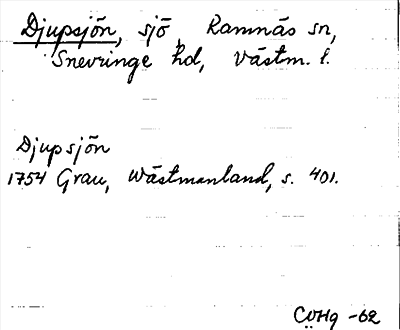 Djupsjön, sjö, Ramnäs sn,
Snevringe hd, Västm. l.
Djupsjön
1754 Grau, Wästmanland, s. 401.
CUHg -62